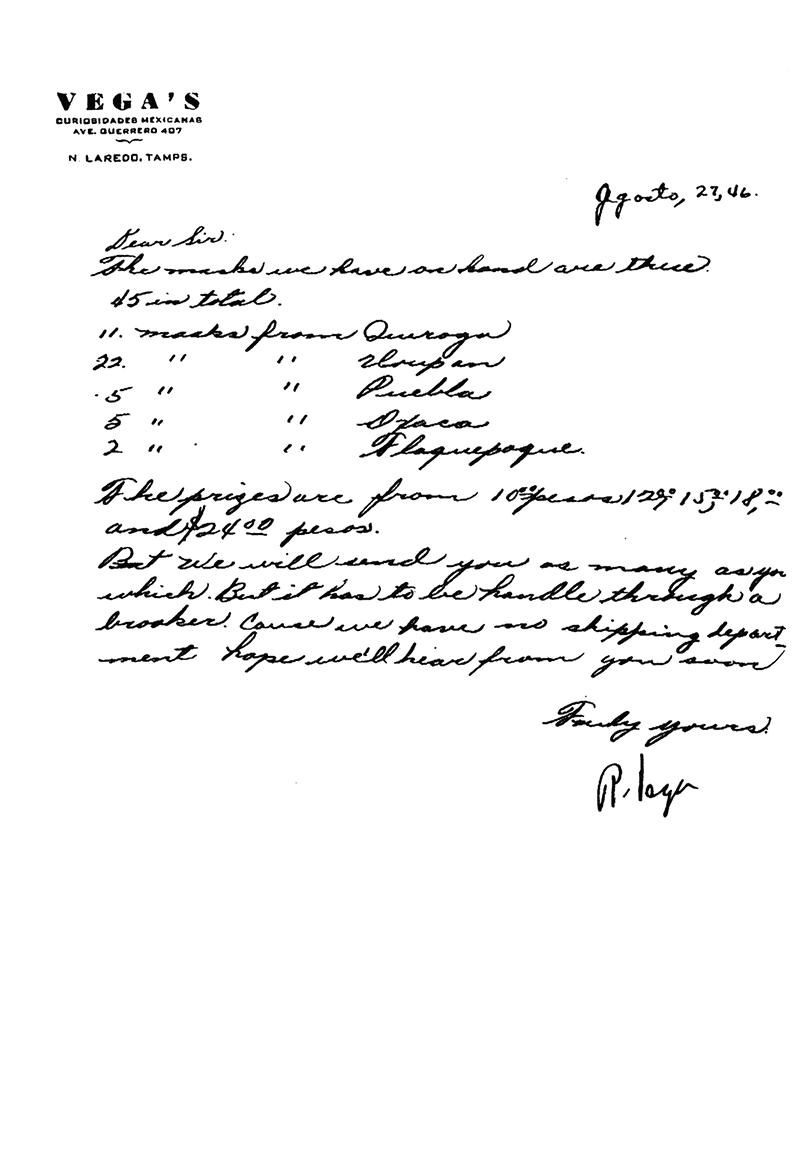 VEGA'S
CURIOSIDADES MEXICANAS
AVE. GUERRERO 407
N. LAREDO, TAMPS.
Agosto, 27, 46.
Dear Sir:
The masks we have on hand are these.
45 in total.
11. masks from Quiroga
22. " " Uoupan
5 " " Puebla
5 " " Oxaca
2 " " Tlaquepaque.
The prizes are from 10.00 pesos 12.00, 15.00, 18.00
and $24.00 pesos.
But we will send you as many as you
which. But it has to be handle through a
brooker. Cause we have no shipping depart-
ment hope we'll hear from you soon
Truly yours.
R. Vega